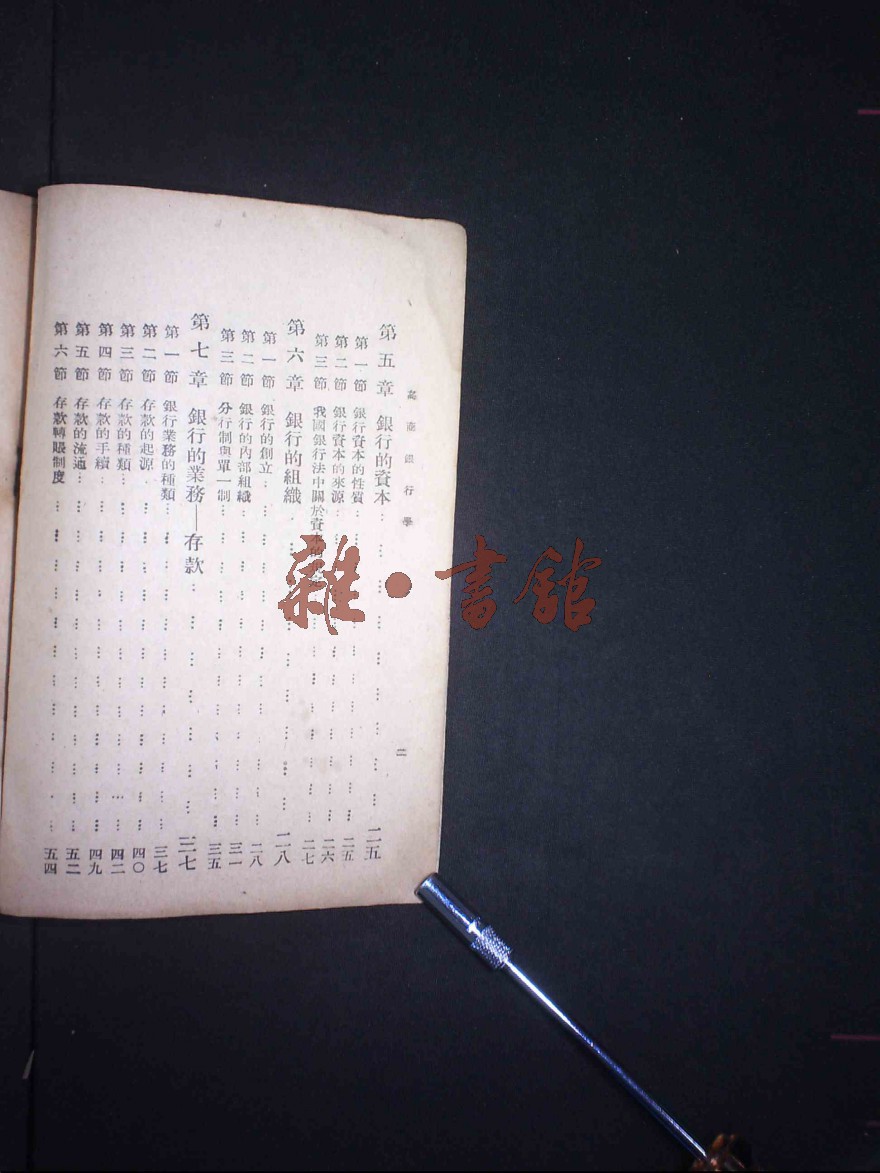 高商銀行學
二
第五章 銀行的資本……二五
第一節 銀行資本的性質……二五
第二節 銀行資本的來源……二六
第三節 我國銀行法中關於資本的……二七
第六章 銀行的組織……二八
第一節 銀行的創立……二八
第二節 銀行的內部組織……三一
第三節 分行制與單一制……三五
第七章 銀行的業務—存款……三七
第一節 銀行業務的種類……三七
第二節 存款的起源……四〇
第三節 存款的種類……四二
第四節 存款的手續……四九
第五節 存款的流通……五二
第六節 存款轉賬制度……五四
雜·書館